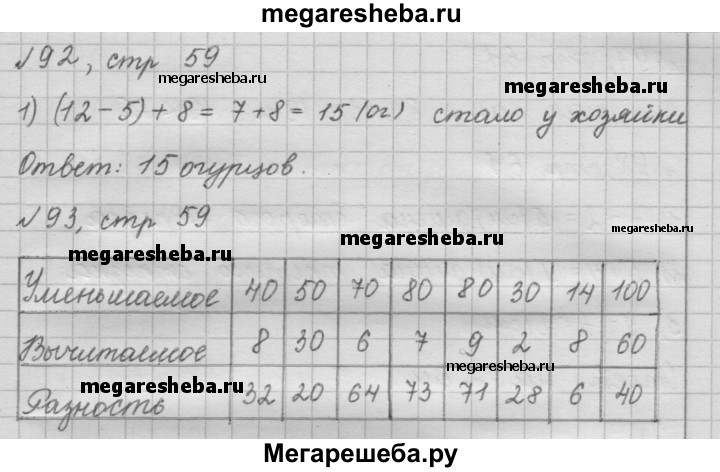 megaresheba.ru
№92, стр 59
megaresheba.ru
megaresheba.ru
1) (12-5)+8 = 7+8 = 15 (ог) стало у хозяйки
Ответ: 15 огурцов.
№93, стр 59
megaresheba.ru
megaresheba.ru
megaresheba.ru
Уменьшаемое 40 50 70 80 80 30 14 100
Вычитаемое 8 30 6 7 9 2 8 60
megaresheba.ru
megaresheba.ru
Разность 32 20 64 73 71 28 6 40
Мегарешеба.ру